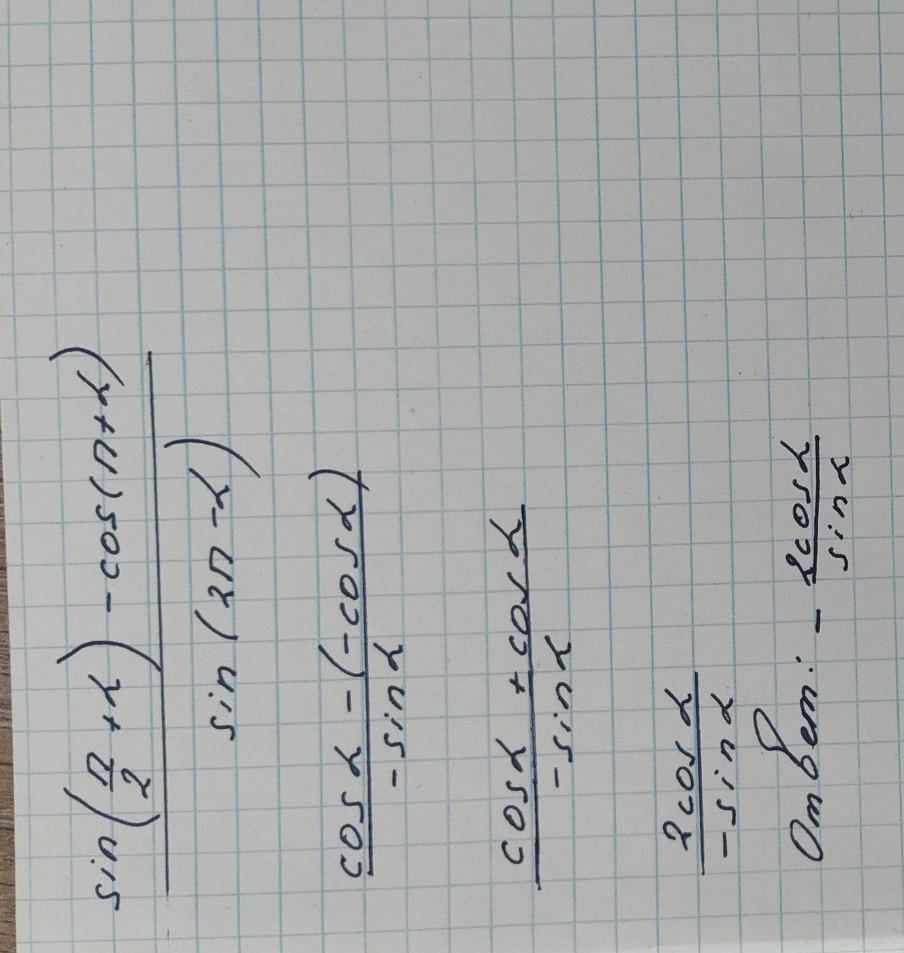 sin(π/2 + α) - cos(π + α)
sin(2π - α)
cosα - (-cosα)
-sinα
cosα + cosα
-sinα
2cosα
-sinα
Ответ: - 2cosα/sinα